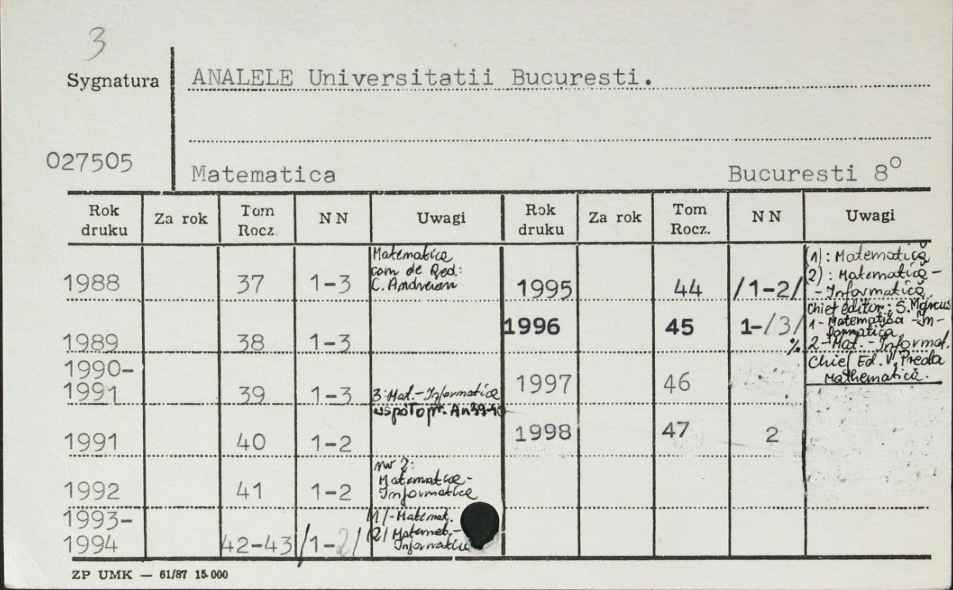 3
Sygnatura ANALELE Universitatii Bucuresti.
027505
Matematica Bucuresti 8°
Rok druku Za rok Tom Rocz. NN Uwagi Rok druku Za rok Tom Rocz. NN Uwagi
1988 37 1-3 Matematica
com de Red:
C. Andreian
1989 38 1-3
1990-
1991 39 1-3 3:Mat.-Informatica
współopr. An 39-40
1991 40 1-2
1992 41 1-2 nr 2:
Matematica-
Informatica
1993-
1994 42-43 /1-2/ /1/-Matemat.
/2/ Matemat.-
Informatica
1995 44 /1-2/ (1): Matematică
2): Matematică-
-Informatică
Chief editor: S. Marcus
1996 45 1-/3/ 1- Matematica -In-
formatica
% 2-Mat.-Informat.
1997 46 Chief Ed. V. Preda
Mathematică.
1998 47 2
ZP UMK — 61/87 15.000